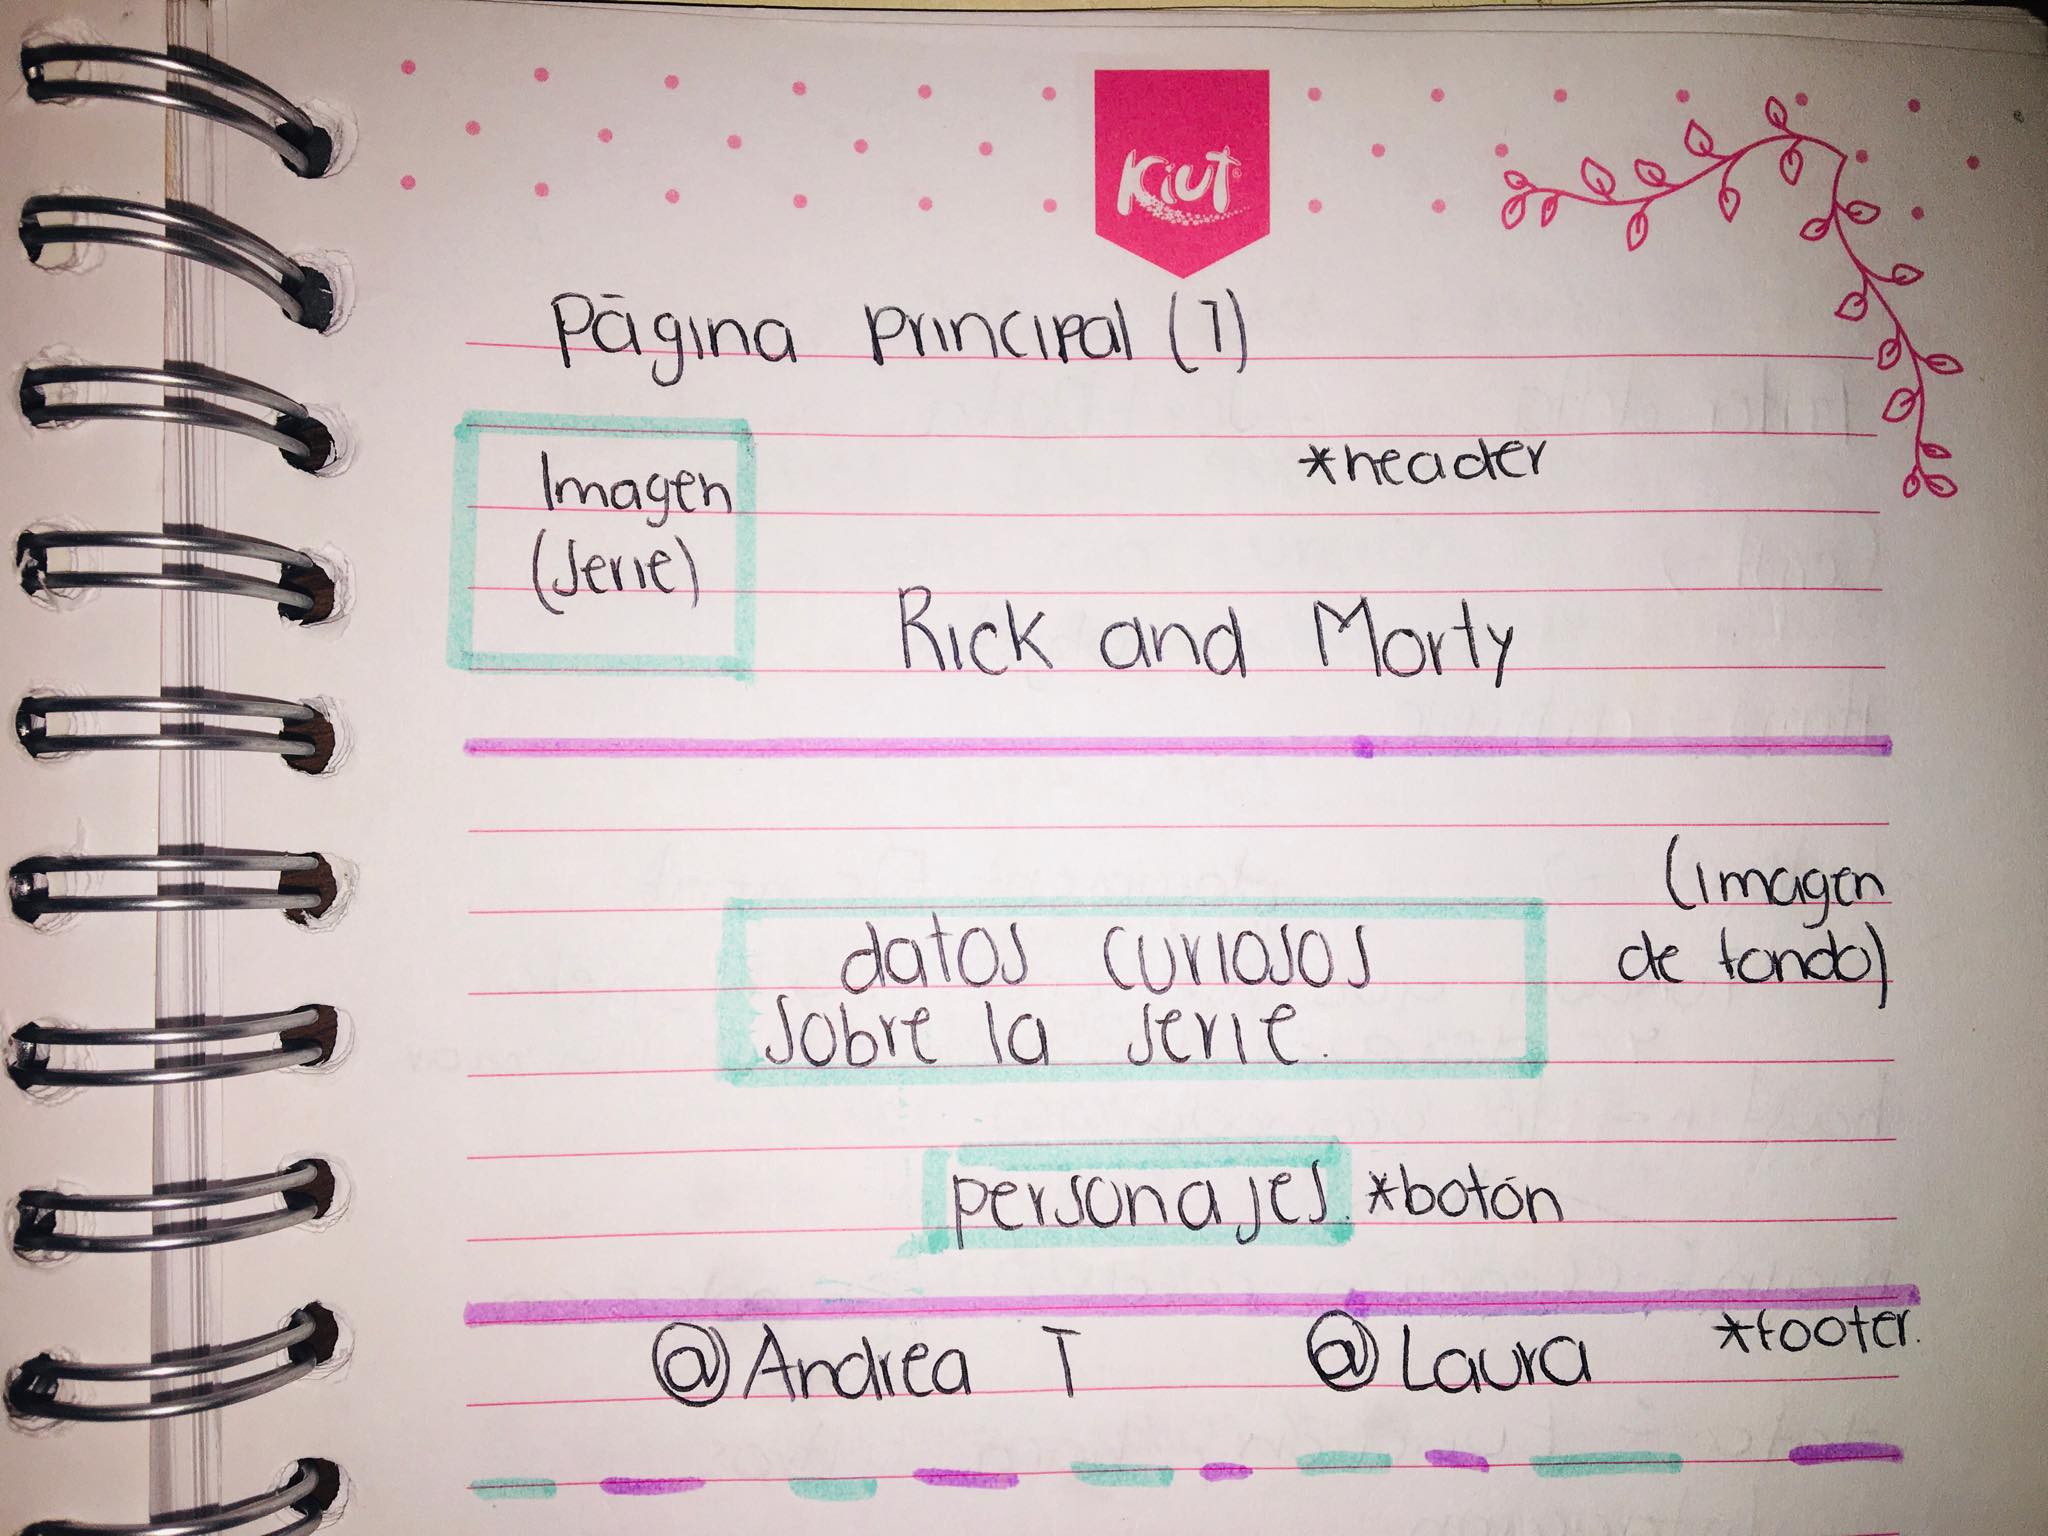 Kiut
Página principal (1)
Imagen
(serie)
*header
Rick and Morty
(imagen
de fondo)
datos curiosos
sobre la serie.
personajes. *botón
@Andrea T @Laura *footer.